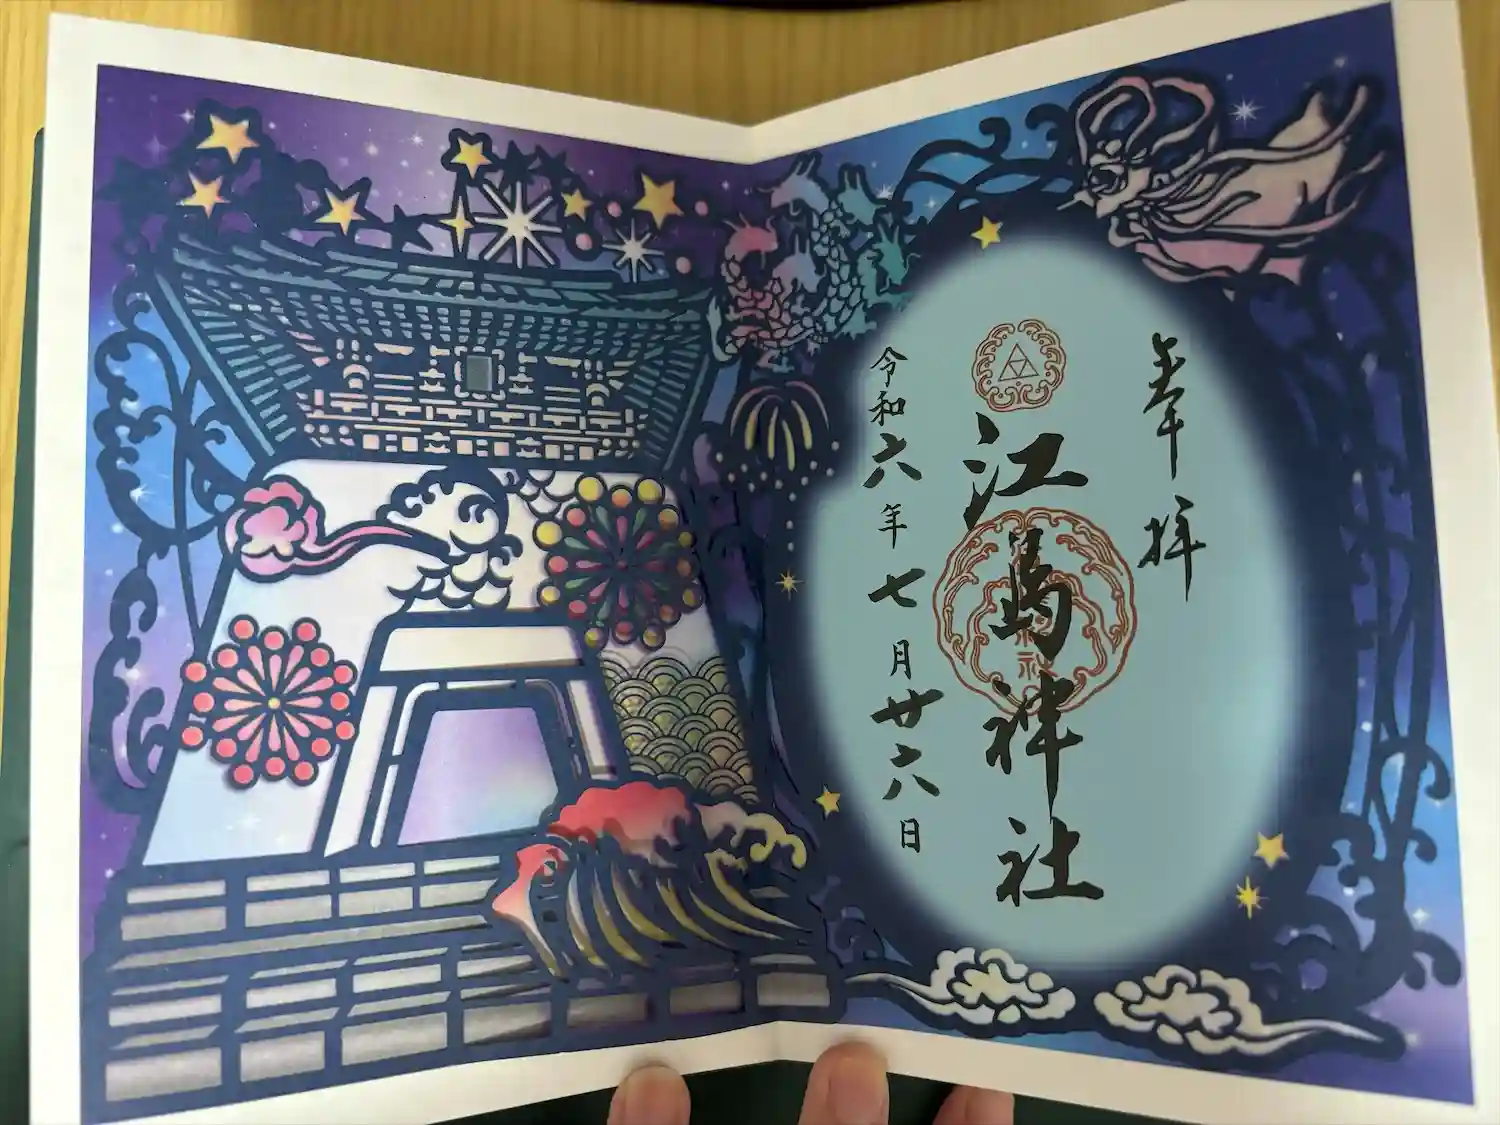 奉拝
江島神社
令和六年七月廿六日